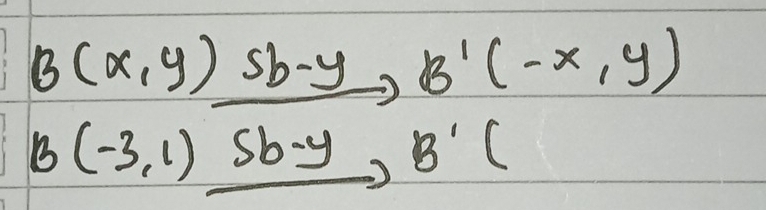 B(x,y) sb-y → B'(-x,y)
B(-3,1) sb-y → B'(